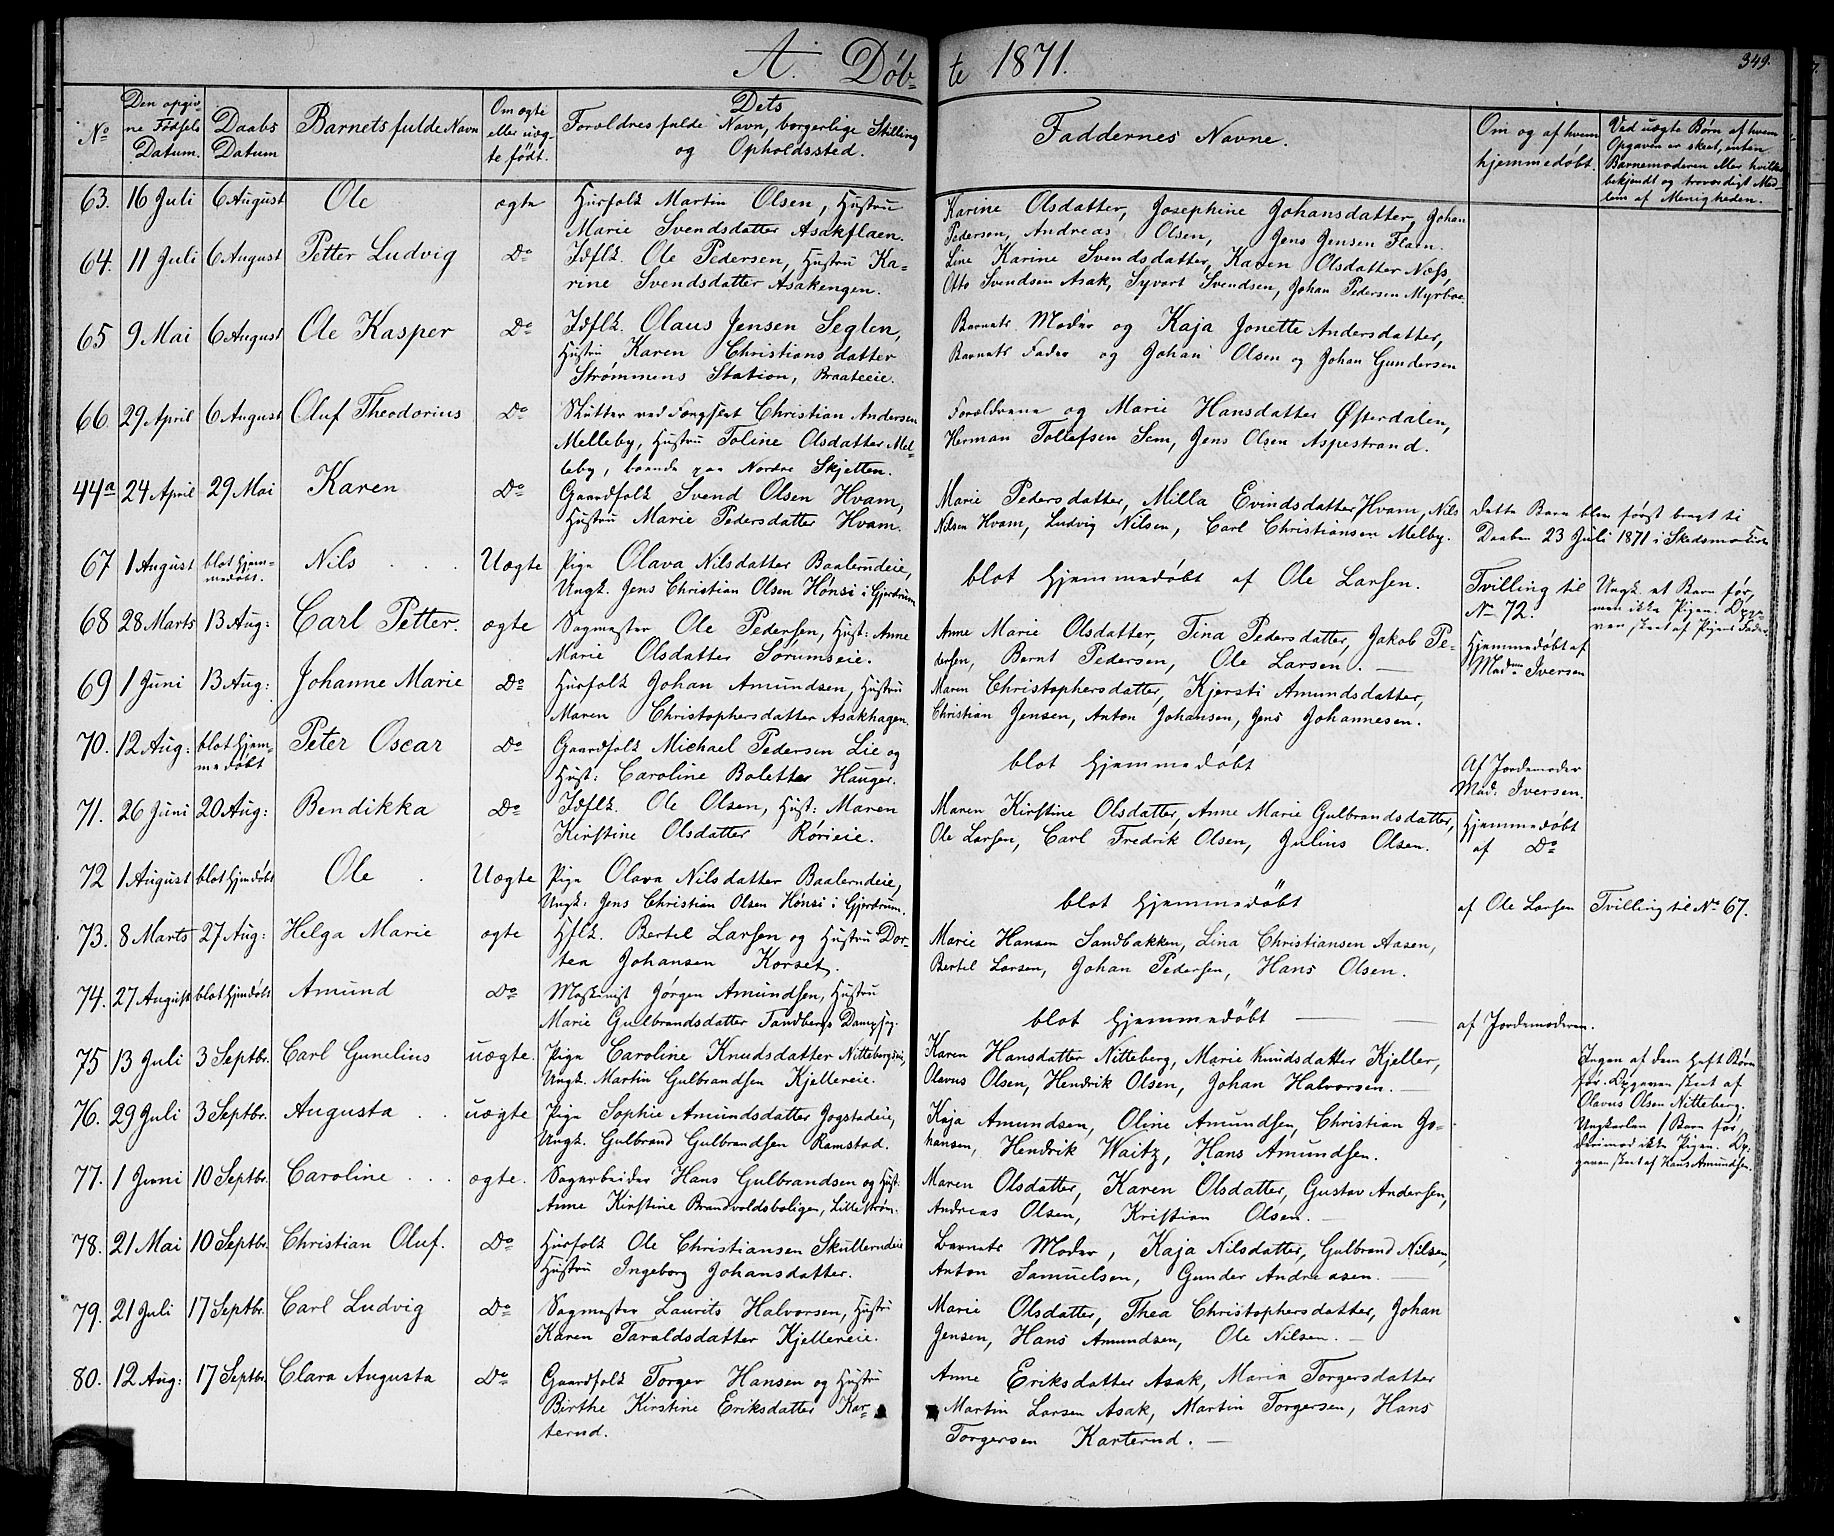 A. Døb-
te 1871.
349.
No
Den opgiv-
ne Fødsels
Datum.
Daabs
Datum
Barnets fulde Navn
Om ægte
eller uæg-
te født.
Dets
Forældres fulde Navn, borgerlige Stilling
og Opholdssted.
Faddernes Navne.
Om og af hvem
hjemmedøbt.
Ved uægte Børn af hvem
Opgaven er skeet, enten
Barnemoderen eller hvilket
bekjendt og troværdigt Med-
lem af Menigheden.
63. 16 Juli 6 August Ole ægte Huusfolk Martin Olsen, Hustru
Marie Svendsdatter Asakflaen.
Karine Olsdatter, Josephine Johansdatter, Johan
Pedersen, Andreas Olsen, Jens Jensen Flaen.
64. 11 Juli 6 August Petter Ludvig Do Idflk. Ole Pedersen, Hustru Ka-
rine Svendsdatter Asakengen.
Line Karine Svendsdatter, Karen Olsdatter Næss,
Otto Svendsen Asak, Syvert Svendsen, Johan Pedersen Myrboe
65 9 Mai 6 August Ole Kasper Do Idflk. Olaus Jensen Seglen,
Hustru Karen Christiansdatter
Strømmens Station, Braateeie.
Barnets Moder og Kaja Jonette Andersdatter,
Barnets Fader og Johan Olsen og Johan Gundersen
66. 29 April 6 August Oluf Theodorius Do Slutter ved Fængslet Christian Andersen
Melleby, Hustru Toline Olsdatter Mel-
leby, boende paa Nordre Skjetten.
Forældrene og Marie Hansdatter Østerdalen,
Herman Tollefsen Sem, Jens Olsen Aspestrand.
44a 24 April 29 Mai Karen Do Gaardfolk Svend Olsen Hvam,
Hustru Marie Pedersdatter Hvam.
Marie Pedersdatter, Milla Evindsdatter Hvam, Nils
Nilsen Hvam, Ludvig Nilsen, Carl Christiansen Melby.
Dette Barn blev først bragt til
Daaben 23 Juli 1871 i Skedsmo Kirke
67 1 August blot hjem-
medøbt. Nils Uægte Pige Olava Nilsdatter Baalerudeie,
Ungk. Jens Christian Olsen Hønsi i Gjerdrum
blot hjemmedøbt af Ole Larsen.
Tvilling til
No 72.
Ungk. et Barn før,
men ikke Pigen. Opga-
ven skeet af Pigens Fader.
68 28 Marts 13 Aug: Carl Petter. ægte Sagmester Ole Pedersen, Hust: Anne
Marie Olsdatter Sørumseie.
Anne Marie Olsdatter, Tina Pedersdatter, Jakob Pe-
dersen, Bernt Pedersen, Ole Larsen.
Hjemmedøbt af
Madm Iversen
69 1 Juni 13 Aug: Johanne Marie Do Huusfolk Johan Amundsen, Hustru
Maren Christophersdatter Asakhagen.
Maren Christophersdatter, Kjersti Amundsdatter,
Christian Jensen, Anton Johansen, Jens Johannesen.
70. 12 Aug: blot hjem-
medøbt Peter Oscar Do Gaardfolk Michael Pedersen Lie og
Hust: Caroline Bolette Hauger.
blot hjemmedøbt
Af Jordemoder
Mad: Iversen.
71. 26 Juni 20 Aug: Bendikka Do Idflk. Ole Olsen, Hust: Maren
Kirstine Olsdatter Rørieie.
Maren Kirstine Olsdatter, Anne Marie Gulbrandsdatter,
Ole Larsen, Carl Fredrik Olsen, Julius Olsen.
Hjemmedøbt
af Do
72 1 August blot hjmdøbt Ole Uægte Pige Olava Nilsdatter Baalerudeie,
Ungk: Jens Christian Olsen Hønsi i Gjerdrum.
blot hjemmedøbt
af Ole Larsen
Tvilling til No 67.
73. 8 Marts 27 Aug: Helga Marie ægte Hflk. Bertel Larsen og Hustru Dor-
tea Johansen Korset.
Marie Hansen Sandbakken, Lina Christiansen Aasen,
Bertel Larsen, Johan Pedersen, Hans Olsen.
74. 27 August blot hjmdøbt Amund Do Maskinist Jørgen Amundsen, Hustru
Marie Gulbrandsdatter Tandbergs Dampsag.
blot hjemmedøbt
af Jordemoderen.
75 13 Juli 3 Septbr. Carl Gunelius uægte. Pige Caroline Knudsdatter Nittebergseie,
Ungk. Martin Gulbrandsen Kjellereie.
Karen Hansdatter Nitteberg, Marie Knudsdatter Kjeller,
Olavus Olsen, Hendrik Olsen, Johan Halvorsen.
Ingen af dem havt Børn
før. Opgaven skeet af
Olavus Olsen Nitteberg.
76. 29 Juli 3 Septbr. Augusta uægte Pige Sophie Amundsdatter Jogstadeie,
Ungk. Gulbrand Gulbrandsen Ramstad.
Kaja Amundsen, Oline Amundsen, Christian Jo-
hansen, Hendrik Waitz, Hans Amundsen.
Ungkarlen 1 Barn før,
derimod ikke Pigen. Op-
gaven skeet af Hans Amundsen.
77. 1 Juni 10 Septbr. Caroline ægte. Sagarbeider Hans Gulbrandsen og Hust.
Anne Kirstine Brandvoldsboligen, Lillestrøm.
Maren Olsdatter, Karen Olsdatter, Gustav Andersen,
Andreas Olsen, Kristian Olsen.
78. 21 Mai 10 Septbr. Christian Oluf. Do Huusfolk Ole Christiansen Skullerudeie
Hustru Ingeborg Johansdatter.
Barnets Moder, Kaja Nilsdatter, Gulbrand Nilsen,
Anton Samuelsen, Gunder Andreasen.
79. 21 Juli 17 Septbr. Carl Ludvig Do Sagmester Laurits Halvorsen, Hustru
Karen Taraldsdatter Kjellereie.
Marie Olsdatter, Thea Christophersdatter, Johan
Jensen, Hans Amundsen, Ole Nilsen.
80. 12 Aug: 17 Septbr. Clara Augusta Do Gaardfolk Torger Hansen og Hustru
Birthe Kirstine Eriksdatter Kar-
terud.
Anne Eriksdatter Asak, Maria Torgersdatter
Martin Larsen Asak, Martin Torgersen, Hans
Torgersen Karterud.